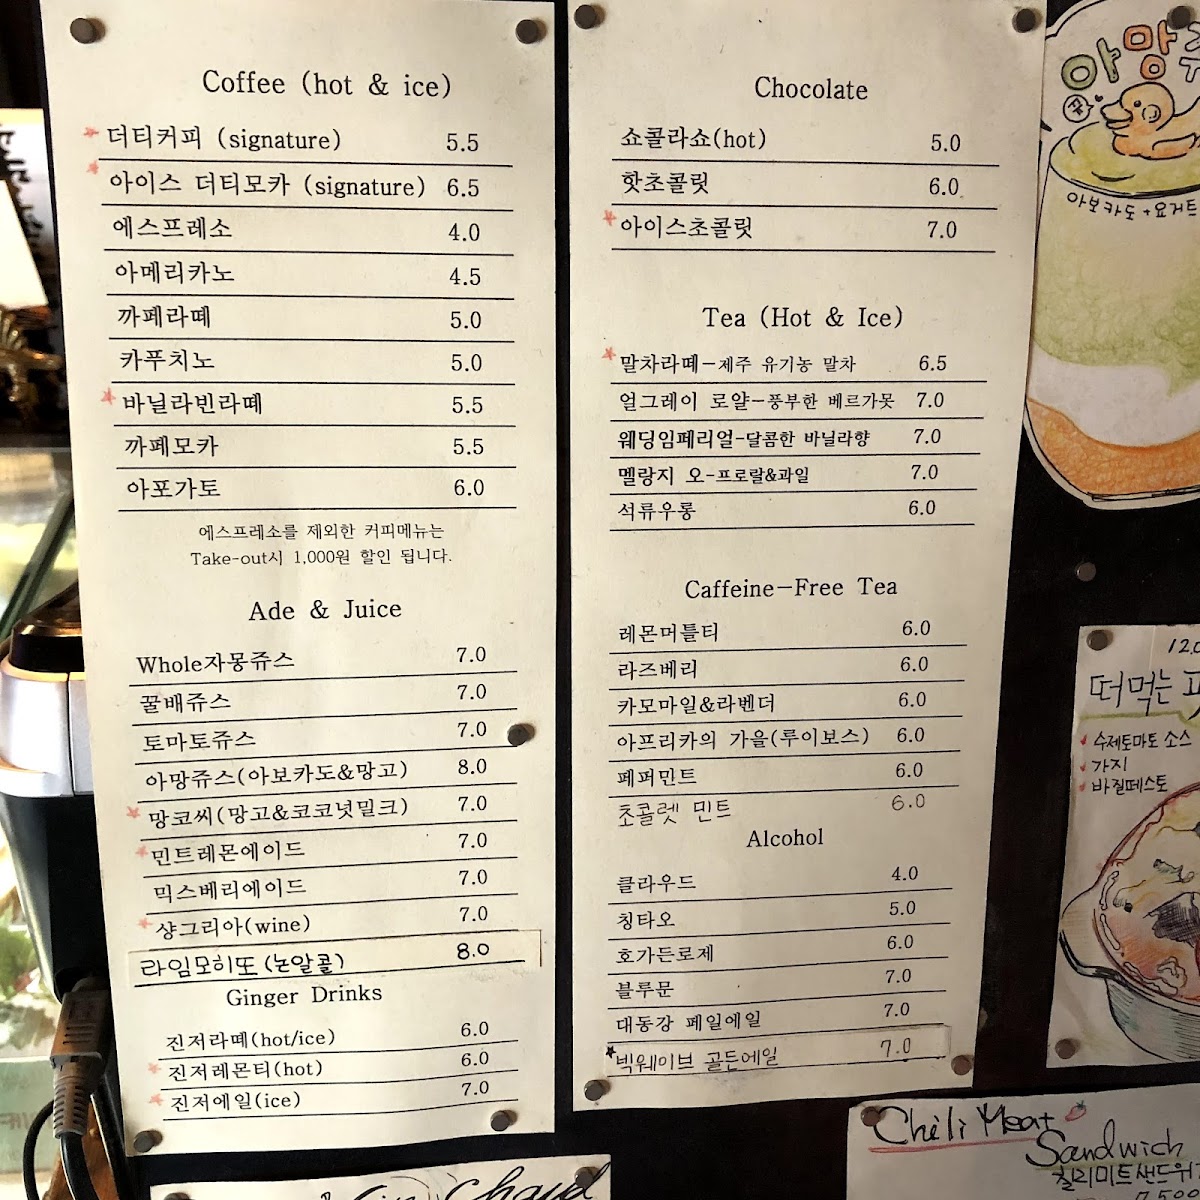 Coffee (hot & ice)
더티커피 (signature) 5.5
아이스 더티모카 (signature) 6.5
에스프레소 4.0
아메리카노 4.5
까페라떼 5.0
카푸치노 5.0
바닐라빈라떼 5.5
까페모카 5.5
아포가토 6.0
에스프레소를 제외한 커피메뉴는
Take-out시 1,000원 할인 됩니다.
Ade & Juice
Whole자몽쥬스 7.0
꿀배쥬스 7.0
토마토쥬스 7.0
아망쥬스(아보카도&망고) 8.0
망코씨(망고&코코넛밀크) 7.0
민트레몬에이드 7.0
믹스베리에이드 7.0
샹그리아(wine) 7.0
라임모히또(논알콜) 8.0
Ginger Drinks
진저라떼(hot/ice) 6.0
진저레몬티(hot) 6.0
진저에일(ice) 7.0
Chocolate
쇼콜라쇼(hot) 5.0
핫초콜릿 6.0
아이스초콜릿 7.0
Tea (Hot & Ice)
말차라떼-제주 유기농 말차 6.5
얼그레이 로얄-풍부한 베르가못 7.0
웨딩임페리얼-달콤한 바닐라향 7.0
멜랑지 오-프로랄&과일 7.0
석류우롱 6.0
Caffeine-Free Tea
레몬머틀티 6.0
라즈베리 6.0
카모마일&라벤더 6.0
아프리카의 가을(루이보스) 6.0
페퍼민트 6.0
초콜렛 민트 6.0
Alcohol
클라우드 4.0
칭타오 5.0
호가든로제 6.0
블루문 7.0
대동강 페일에일 7.0
빅웨이브 골든에일 7.0
아망
아보카도+요거트
12.0
떠먹는
수제토마토 소스
가지
바질페스토
Chili Meat
Sandwich
칠리미트샌드위